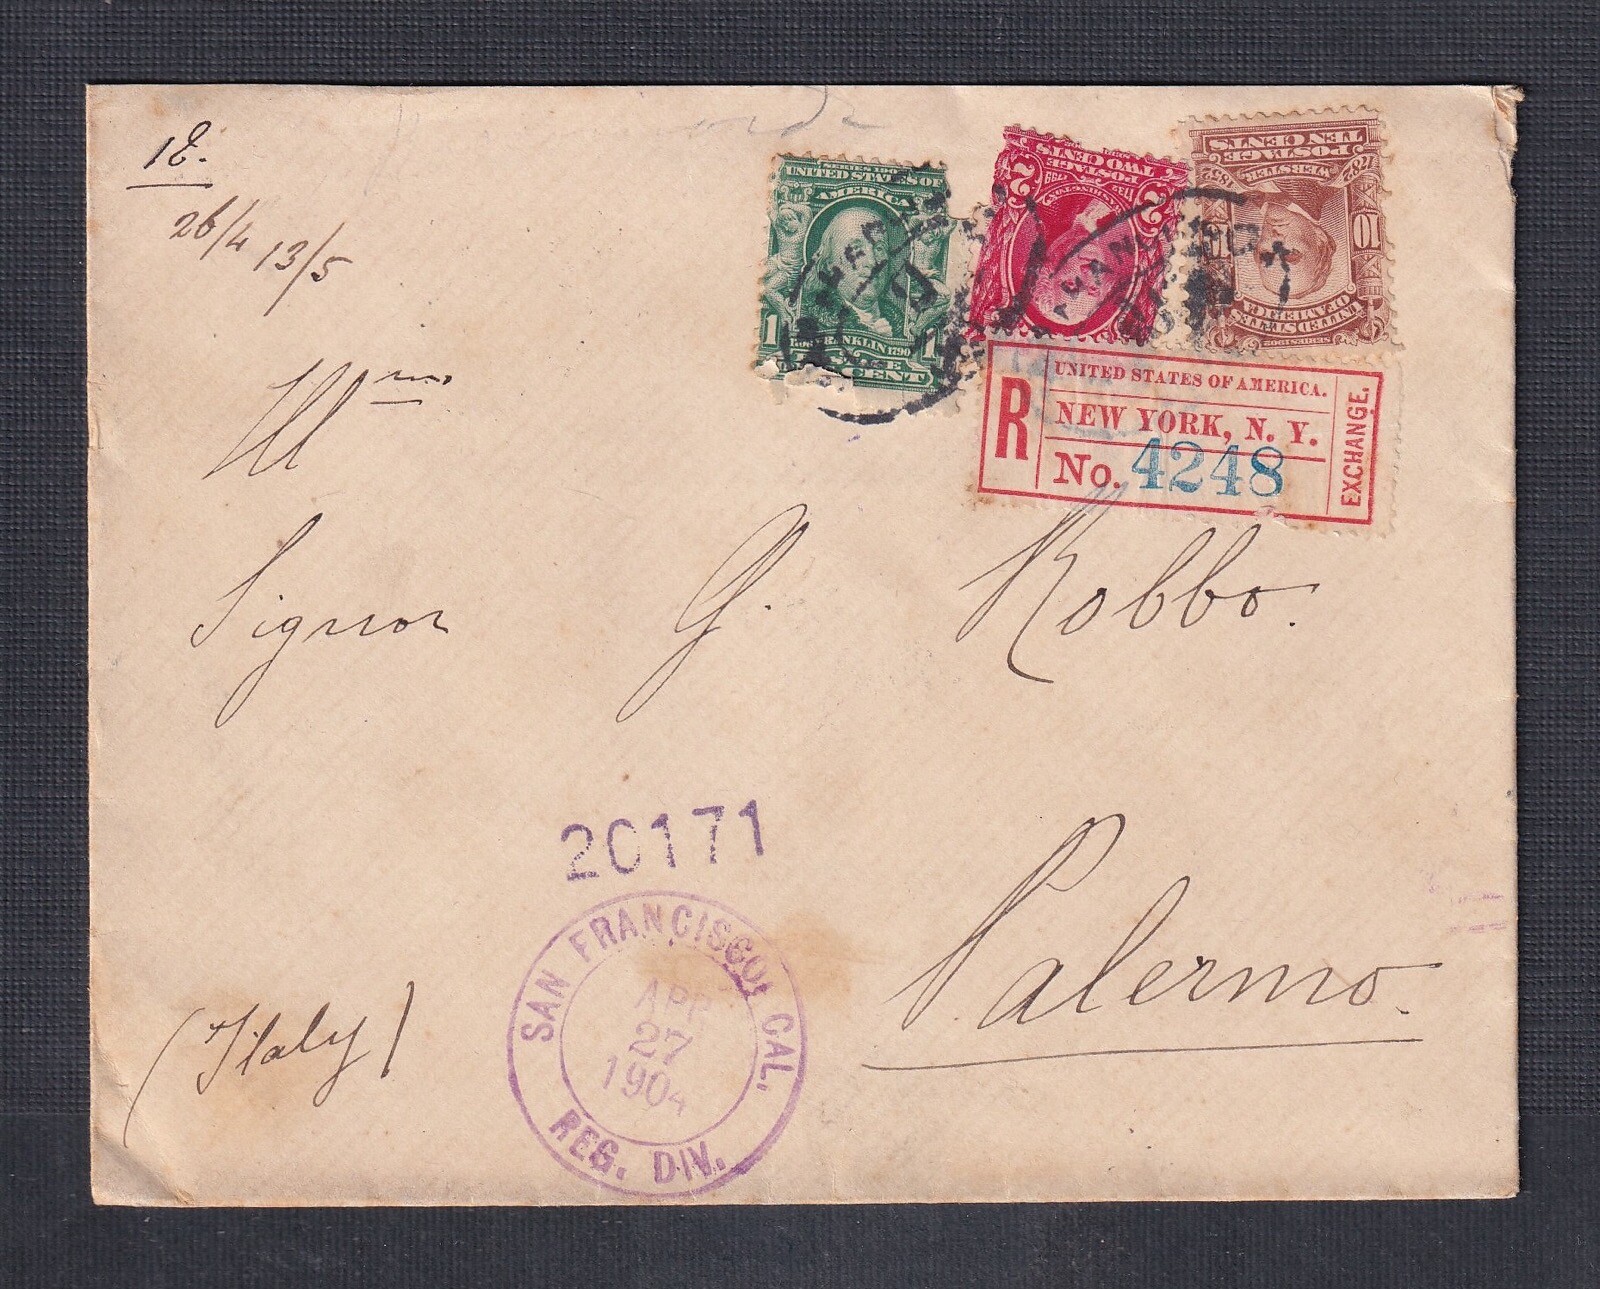 18.
26/4 13/5
SERIES 1902
UNITED STATES OF
AMERICA
1 FRANKLIN 1790 1
ONE CENT
POSTAGE
TWO CENTS
2 2
WASHINGTON
1732 1799
POSTAGE
TEN CENTS
WEBSTER
1782 1852
10
UNITED STATES
OF AMERICA
SERIES 1902
R
UNITED STATES OF AMERICA.
NEW YORK, N. Y.
No. 4248
EXCHANGE.
Ill mo
Signor G. Robbo.
Palermo.
(Italy)
20171
SAN FRANCISCO, CAL.
APR
27
1904
REG. DIV.